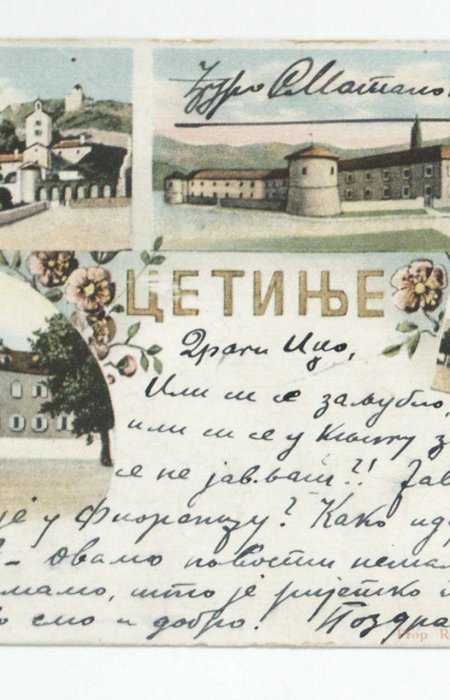 Ђуро С Матано
ЦЕТИЊЕ
Драги Ицо,
Или си се заљубио,
или си се у књигу з
се не јављаш?! Јав
је у Фиоренцу? Како ид
- Овамо новости нема
мамо, што је ријетко
смо и добро! Поздра
Prop R